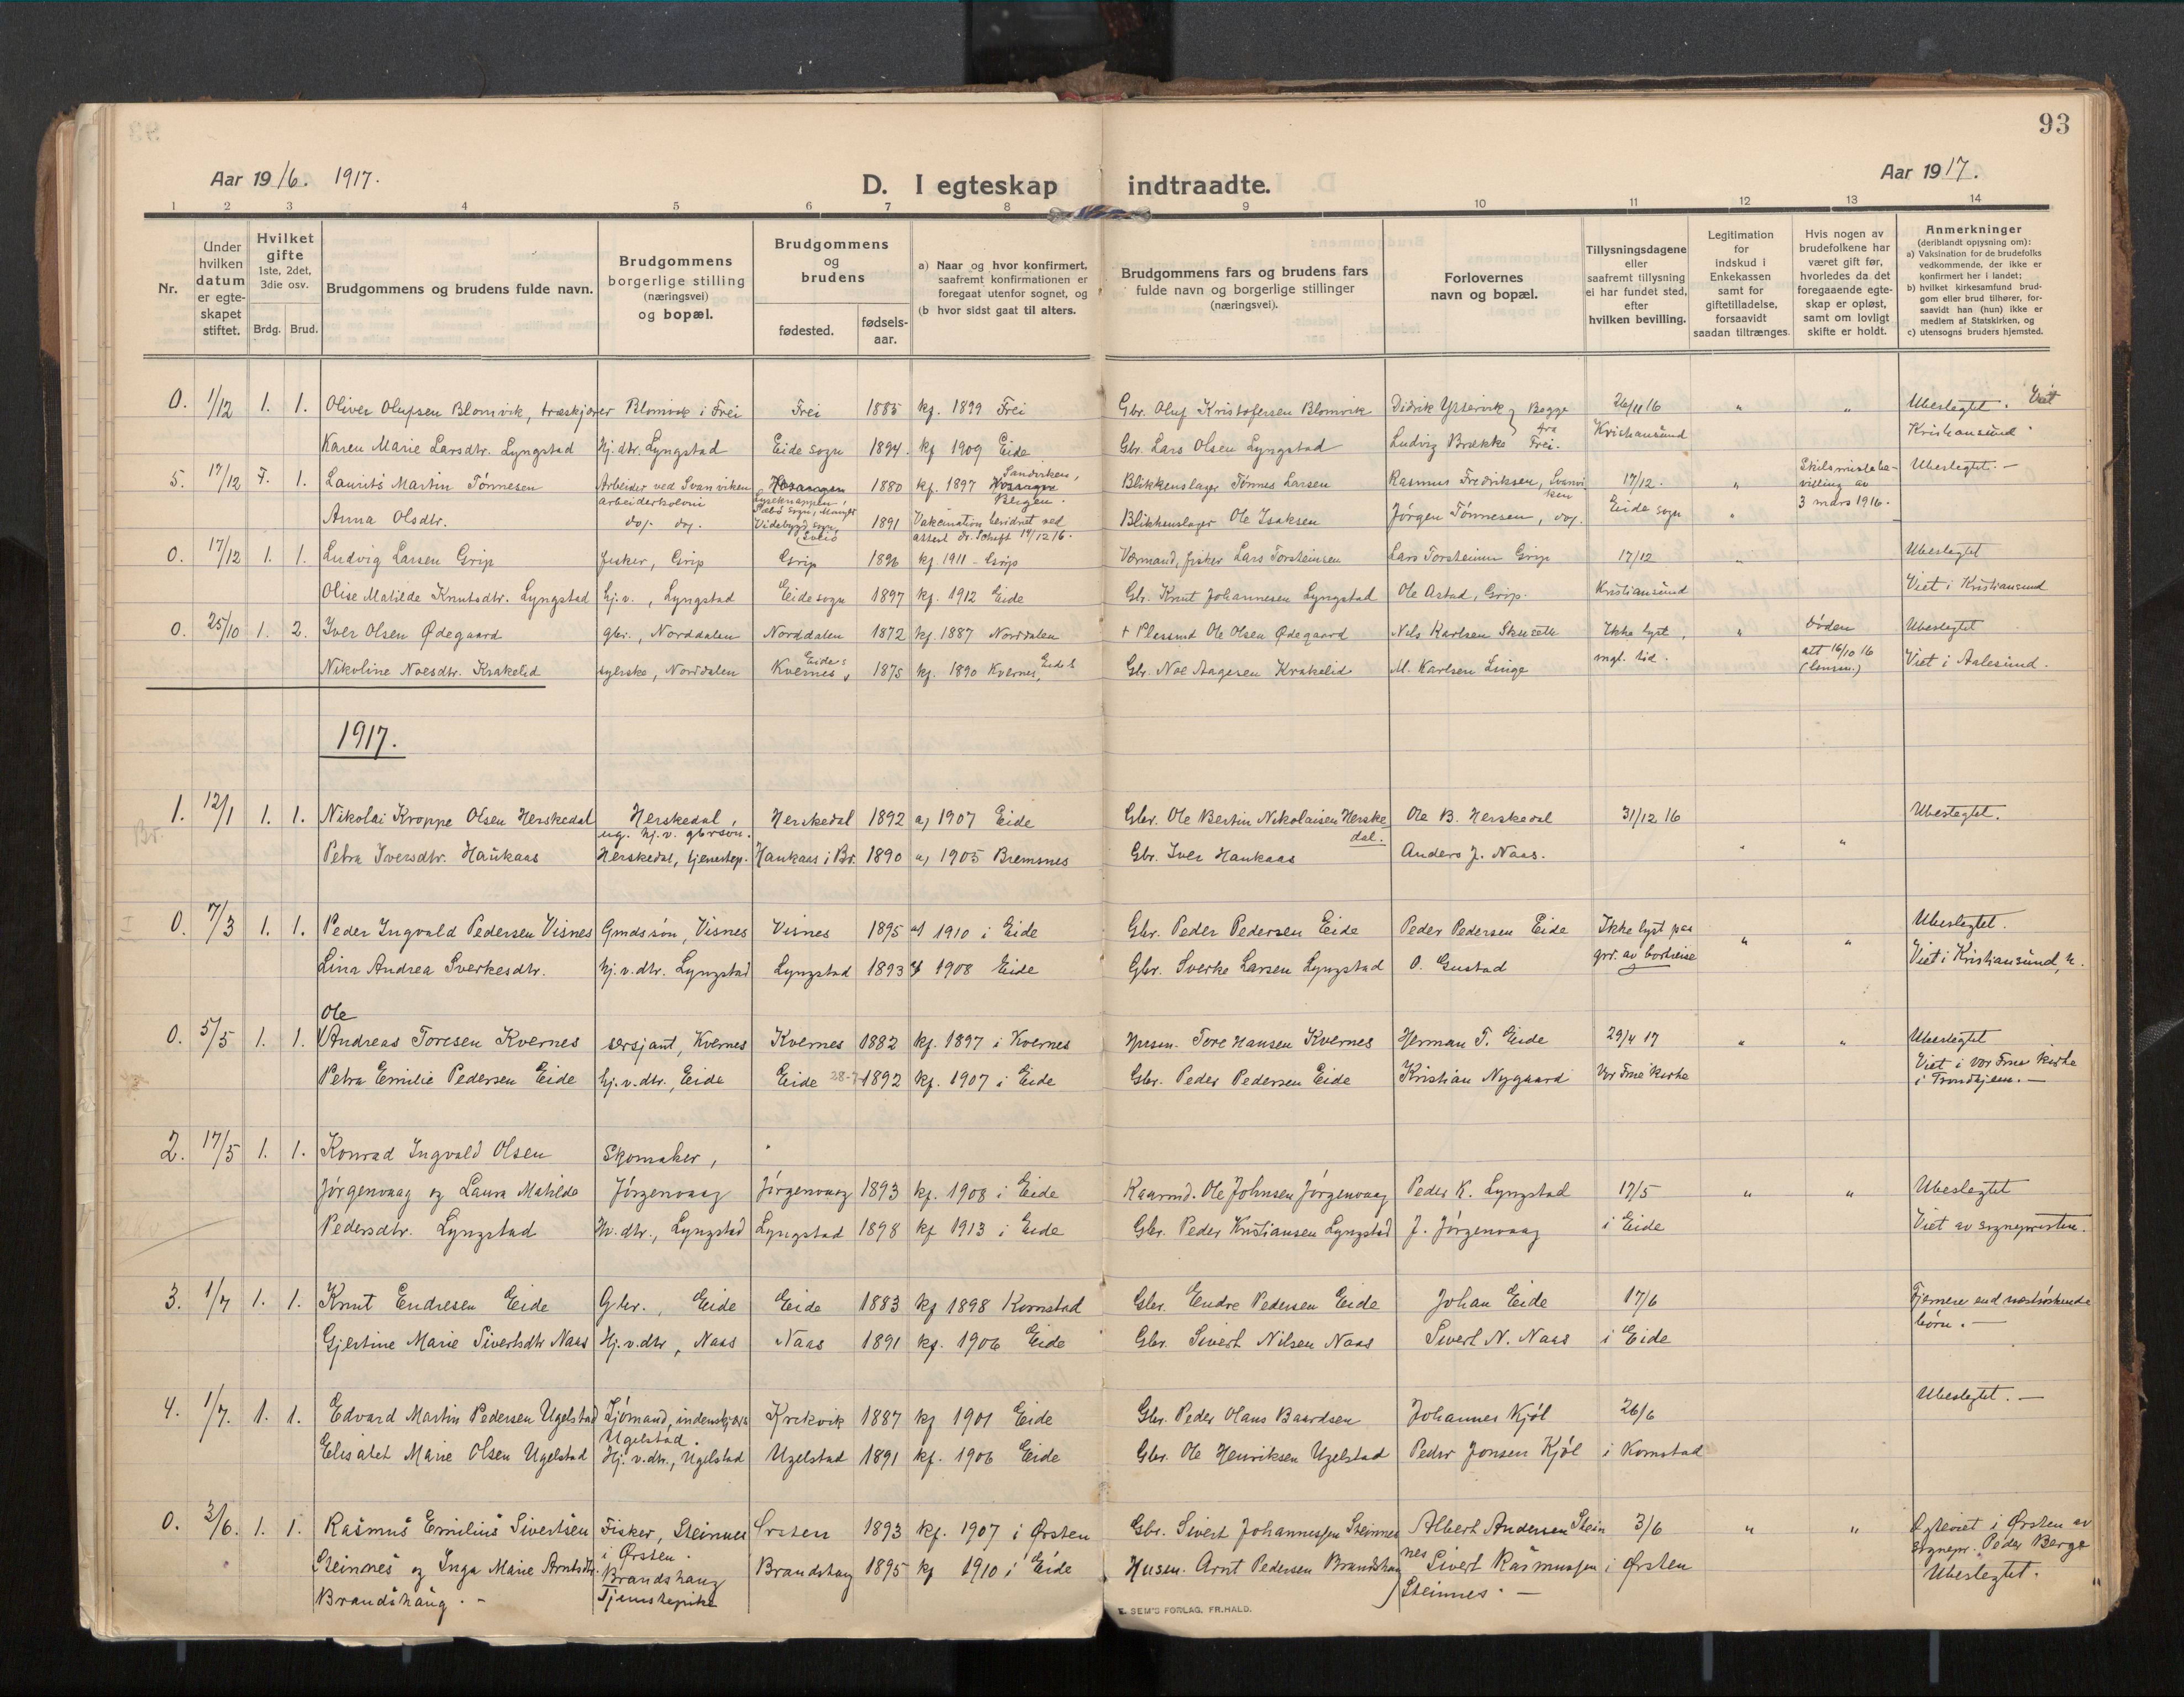 93
Aar 1916. 1917.
D. I egteskap indtraadte.
Aar 1917.
1 2 3 4 5 6 7 8 9 10 11 12 13 14
Nr.
Under hvilken datum er egteskapet stiftet.
Hvilket gifte 1ste, 2det, 3die osv.
Brdg. Brud.
Brudgommens og brudens fulde navn.
Brudgommens borgerlige stilling (næringsvei) og bopæl.
Brudgommens og brudens
fødested. fødsels-aar.
a) Naar og hvor konfirmert, saafremt konfirmationen er foregaat utenfor sognet, og
(b hvor sidst gaat til alters.
Brudgommens fars og brudens fars fulde navn og borgerlige stillinger (næringsvei).
Forlovernes navn og bopæl.
Tillysningsdagene eller saafremt tillysning ei har fundet sted, efter hvilken bevilling.
Legitimation for indskud i Enkekassen samt for giftetilladelse, forsaavidt saadan tiltrænges.
Hvis nogen av brudefolkene har været gift før, hvorledes da det foregaaende egteskap er opløst, samt om lovligt skifte er holdt.
Anmerkninger (deriblandt opiysning om):
a) Vaksination for de brudefolks vedkommende, der ikke er konfirmert her i landet;
b) hvilket kirkesamfund brudgom eller brud tilhører, forsaavidt han (hun) ikke er medlem af Statskirken, og
c) utensogns bruders hjemsted.
0. 1/12 1. 1. Oliver Olufsen Blomvik, træskjærer Blomvik i Frei Frei 1885 kf. 1899 Frei Gbr. Oluf Kristofersen Blomvik Didrik Ystervik } Begge 26/11 16 " " Ubeslegtet. Viet
Karen Marie Larsdtr. Lyngstad Hj. dtr. Lyngstad Eide sogn 1894. kf 1909 Eide Gbr. Lars Olsen Lyngstad Ludvig Brække fra Frei. Kristiansund Kristiansund.
5. 17/12 F. 1. Laurits Martin Tønnesen Arbeider ved Svanviken arbeiderkoloni 1880 kf. 1897 Sandviken, Bergen. Blikkenslager Tønnes Larsen Rasmus Fredriksen, Svanviken 17/12. Skilsmissebevilling av 3 mars 1916. Ubeslegtet. —
Anna Olsdtr. do. do. 1891 Vakcination bevidnet ved attest 14/12 16. Blikkenslager Ole Isaksen Jørgen Tønnesen, do. Eide sogn "
0. 17/12 1. 1. Ludvig Larsen Grip fisker, Grip Grip 1896 kf 1911 - Grip Værmand, fisker Lars Torsteinsen Lars Torsteinsen Grip 17/12 " Ubeslegtet
Olise Matilde Knutsdtr. Lyngstad hj. v. , Lyngstad Eide sogn 1897 kf. 1912 Eide Gbr. Knut Johannesen Lyngstad Ole Astad, Grip. Kristiansund Viet i Kristiansund
0. 25/10 1. 2. Iver Olsen Ødegaard gbr., Norddalen Norddalen 1872 kf. 1887 Norddalen + Ole Olsen Ødegaard Nils Karlsen Ikke lyst, " Døden Ubeslegtet
Nikoline Noesdtr. Krakelid syerske, Norddalen Kvernes, Eide s 1875 kf. 1890 Kvernes, Eide s Gbr. Noe Aagesen Krakelid M. Karlsen Linge mgl. tid. att 16/10 16 Viet i Aalesund.
1917.
Br.
1. 12/1 1. 1. Nikolai Kroppe Olsen Herskedal Herskedal, ug. hj. v. gbrsøn. Herskedal 1892 a) 1907 Eide Gbr. Ole Bertin Nikolaisen Herskedal. Ole B. Herskedal 31/12 16 Ubeslegtet.
Petra Iversdtr. Haukaas Herskedal, tjenestep. Haukaas i Br. 1890 a) 1905 Bremsnes Gbr. Iver Haukaas Anders J. Naas. " "
0. 7/3 1. 1. Peder Ingvald Pedersen Visnes Gmdssøn, Visnes Visnes 1895 1910 i Eide Gbr. Peder Pedersen Eide Peder Pedersen Eide Ikke lyst paa " " Ubeslegtet.
Lina Andrea Sverkesdtr. hj. v. dtr. Lyngstad Lyngstad 1893 1908 Eide Gbr. Sverke Larsen Lyngstad O. Gustad grr. av bortreise Viet i Kristiansund, N.
Ole
0. 5/5 1. 1. Andreas Toresen Kvernes sersjant, Kvernes Kvernes 1882 kf. 1897 i Kvernes Husm. Tore Hansen Kvernes Herman T. Eide 29/4 17 " " Ubeslegtet
Petra Emilie Pedersen Eide hj. v. dtr., Eide Eide 28-7 1892 kf. 1907 i Eide Gbr. Peder Pedersen Eide Kristian Nygaard Vor Frue kirke Viet i Vor Frue kirke i Trondhjem. —
2. 17/5 1. 1. Konrad Ingvald Olsen Skomaker,
Jørgenvaag og Laura Matilde Jørgenvaag Jørgenvaag 1893 kf. 1908 i Eide Kaarmd. Ole Johnsen Jørgenvaag Peder K. Lyngstad 17/5 " " Ubeslegtet
Pedersdtr. Lyngstad Hv. dtr., Lyngstad Lyngstad 1898 kf 1913 i Eide Gbr. Peder Kristiansen Lyngstad J. Jørgenvaag i Eide Viet av sogneprsten.
3. 1/7 1. 1. Knut Endresen Eide Gbr., Eide Eide 1883 kf 1898 Kornstad Gbr. Endre Pedersen Eide Johan Eide 17/6 Fjernere end næstsøskende
Gjertine Marie Sivertsdtr Naas Hj. v. dtr, Naas Naas 1891 kf. 1906 Eide Gbr. Sivert Nilsen Naas Sivert N. Naas i Eide børn. —
4. 1/7. 1. 1. Edvard Martin Pedersen Ugelstad Sjømand, indenskjærs Ugelstad Krekvik 1887 kf 1901 Eide Gbr. Peder Olaus Baardsen Johannes Kjøl 26/6 Ubeslegtet. —
Elisabet Marie Olsen Ugelstad Hj. v. dtr., Ugelstad Ugelstad 1891 kf. 1906 Eide Gbr. Ole Henriksen Ugelstad Peder Jonsen Kjøl i Kornstad
0. 3/6. 1. 1. Rasmus Emilius Sivertsen Fisker, Steinnes i Ørsten. Ørsten 1893 kf. 1907 i Ørsten Gbr. Sivert Johannessen Steinnes Albert Andersen Steinnes 3/6 " " Egteviet i Ørsten av
Steinnes og Inga Marie Arntsdtr. Brandshaug Brandshaug 1895 kf 1910 i Eide Husm. Arnt Pedersen Brandshaug Sivert Rasmussen i Ørsten sognepr. Peder Berge
Brandshaug. - Tjenestepike Steinnes. — Ubeslegtet.
E. SEM'S FORLAG, FR.HALD.